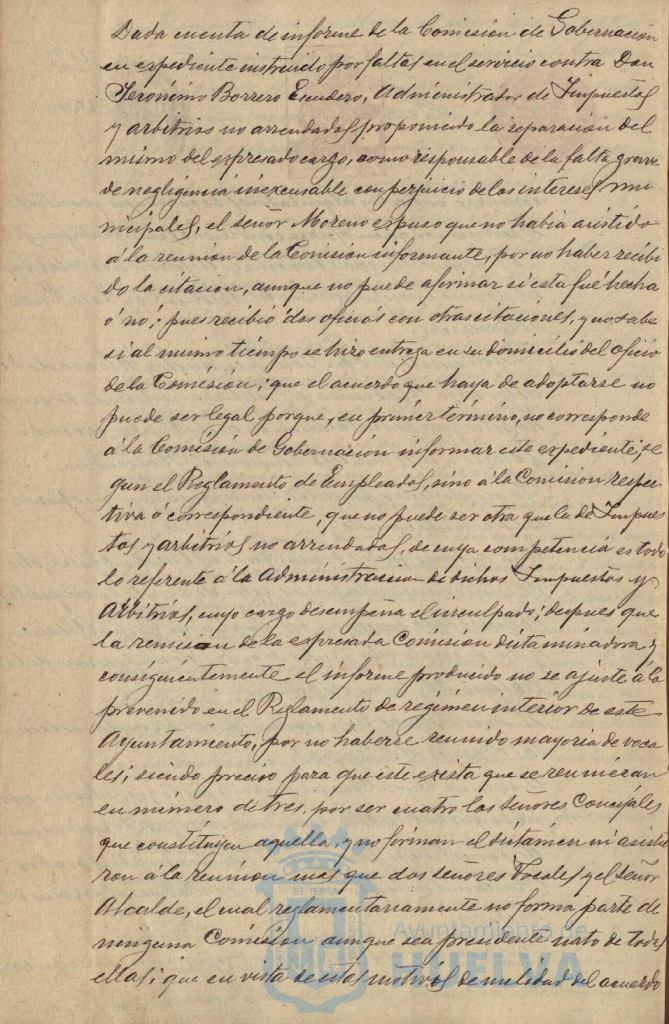 Dada cuenta de informe de la Comisión de Gobernación
en expediente instruido por faltas en el servicio contra Don
Jerónimo Borrero Escudero, Administrador de Impuestos
y arbitrios no arrendados, proponiendo la separación del
mismo del espresado cargo, como responsable de la falta grave
de negligencia inexcusable con perjuicio de los intereses mu
nicipales, el señor Moreno expuso que no habia asistido
á la reunion de la Comision informante, por no haber recibi
do la citacion, aunque no puede afirmar si esta fué hecha
ó nó; pues recibió dos oficios con otras citaciones, y no sabe
si al mismo tiempo se hizo entrega en su domicilio del oficio
de la Comisión; que el acuerdo que haya de adoptarse no
puede ser legal porque, en primer término, no corresponde
á la Comisión de Gobernación informar este expediente, se
gun el Reglamento de Empleados, sino á la Comision respec
tiva ó correspondiente, que no puede ser otra que la de Impues
tos y arbitrios no arrendados, de cuya competencia es todo
lo referente á la Administracion de dichos Impuestos y
Arbitrios, cuyo cargo desempeña el inculpado; despues que
la reunion de la espresada Comision dictaminadora y
consiguientemente el informe producido no se ajusta á lo
prevenido en el Reglamento de régimen interior de este
Ayuntamiento, por no haberse reunido mayoria de voca
les; siendo preciso para que este exista que se reunieran
en número de tres, por ser cuatro los Señores Concejales
que constituyen aquella, y no forman el dictámen ni asistie
ron á la reunion mas que dos señores Vocales y el Señor
Alcalde, el cual reglamentariamente no forma parte de
ninguna Comision aunque sea presidente nato de todas
ellas; que en vista de estos motivos de nulidad del acuerdo
Ayuntamiento de
HUELVA